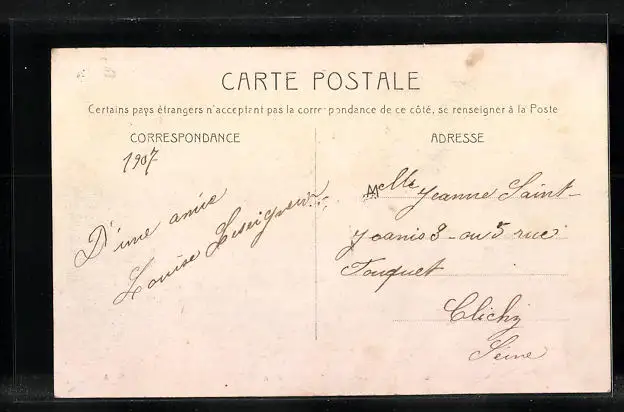 CARTE POSTALE
Certains pays étrangers n'acceptent pas la correspondance de ce côté, se renseigner à la Poste
CORRESPONDANCE
1907
D'une amie
Louise
ADRESSE
Melle Jeanne Saint-
Joanis 3 - ou 5 rue
Touquet
Clichy
Seine